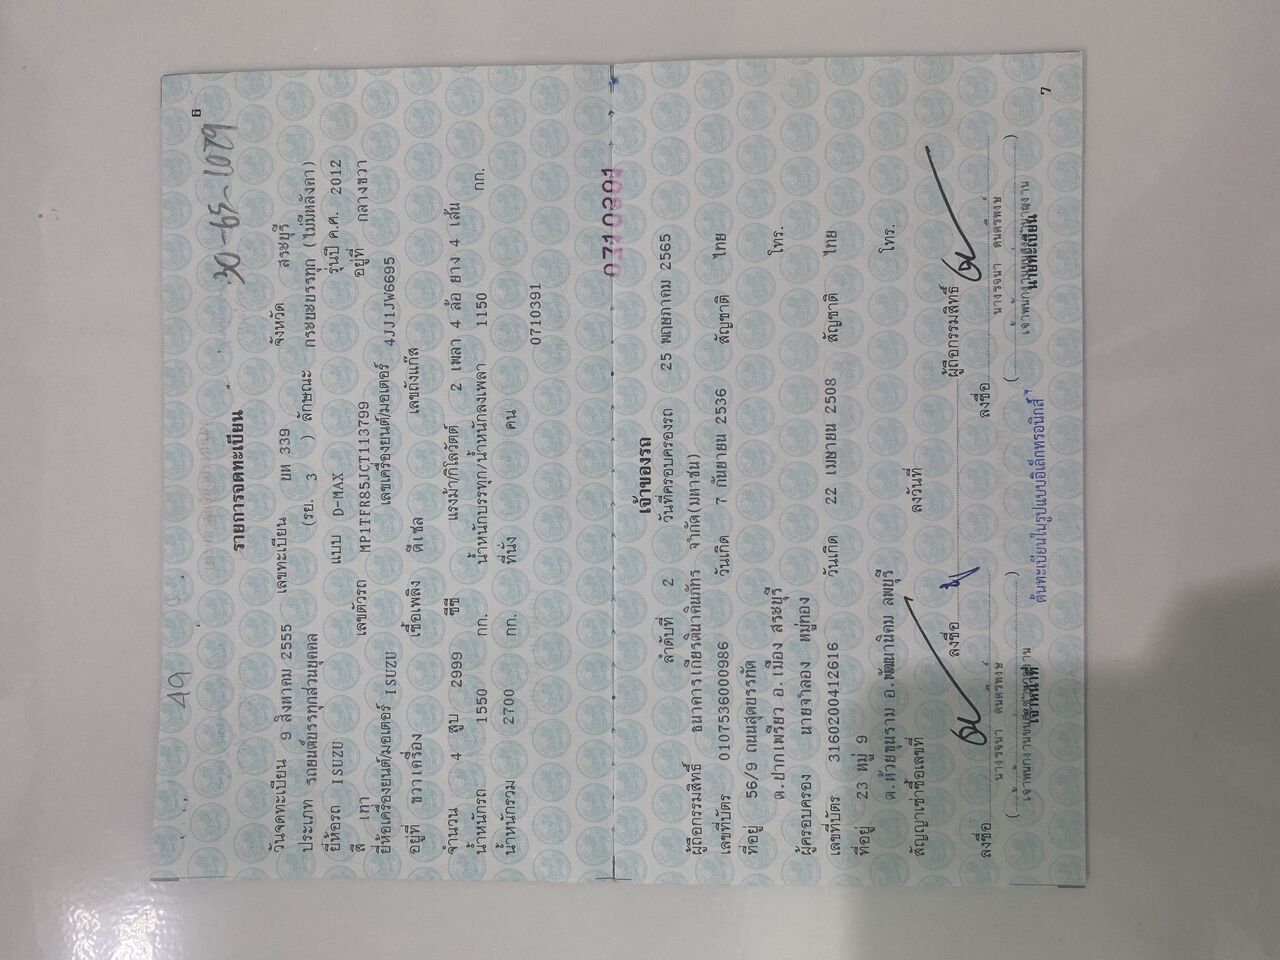 49
30-65-1079
6
รายการจดทะเบียน
วันจดทะเบียน 9 สิงหาคม 2555 เลขทะเบียน บห 339 จังหวัด สระบุรี
ประเภท รถยนต์บรรทุกส่วนบุคคล (รย. 3 ) ลักษณะ กระบะบรรทุก (ไม่มีหลังคา)
ยี่ห้อรถ ISUZU แบบ D-MAX รุ่นปี ค.ศ. 2012
สี เทา เลขตัวรถ MP1TFR85JCT113799 อยู่ที่ กลางขวา
ยี่ห้อเครื่องยนต์/มอเตอร์ ISUZU เลขเครื่องยนต์/มอเตอร์ 4JJ1JW6695
อยู่ที่ ขวาเครื่อง เชื้อเพลิง ดีเซล เลขถังแก๊ส
จำนวน 4 สูบ 2999 ซีซี แรงม้า/กิโลวัตต์ 2 เพลา 4 ล้อ ยาง 4 เส้น
น้ำหนักรถ 1550 กก. น้ำหนักบรรทุก/น้ำหนักลงเพลา 1150 กก.
น้ำหนักรวม 2700 กก. ที่นั่ง คน
0710391
0710391
เจ้าของรถ
ลำดับที่ 2 วันที่ครอบครองรถ 25 พฤษภาคม 2565
ผู้ถือกรรมสิทธิ์ ธนาคารเกียรตินาคินภัทร จำกัด(มหาชน)
เลขที่บัตร 0107536000986 วันเกิด 7 กันยายน 2536 สัญชาติ ไทย
ที่อยู่ 56/9 ถนนสุดบรรทัด
ต.ปากเพรียว อ.เมือง สระบุรี โทร.
ผู้ครอบครอง นายจำลอง หมู่ทอง
เลขที่บัตร 3160200412616 วันเกิด 22 เมษายน 2508 สัญชาติ ไทย
ที่อยู่ 23 หมู่ 9
ต.ห้วยขุนราม อ.พัฒนานิคม ลพบุรี โทร.
สัญญาเช่าซื้อเลขที่ ลงวันที่
ลงชื่อ ผู้ถือกรรมสิทธิ์
ลงชื่อ ลงชื่อ
นางรจนา ดนตรีพงษ์ นางรจนา ดนตรีพงษ์
เจ้าหน้าที่ นายทะเบียน
ต้นทะเบียนในรูปแบบอิเล็กทรอนิกส์ฯ
7